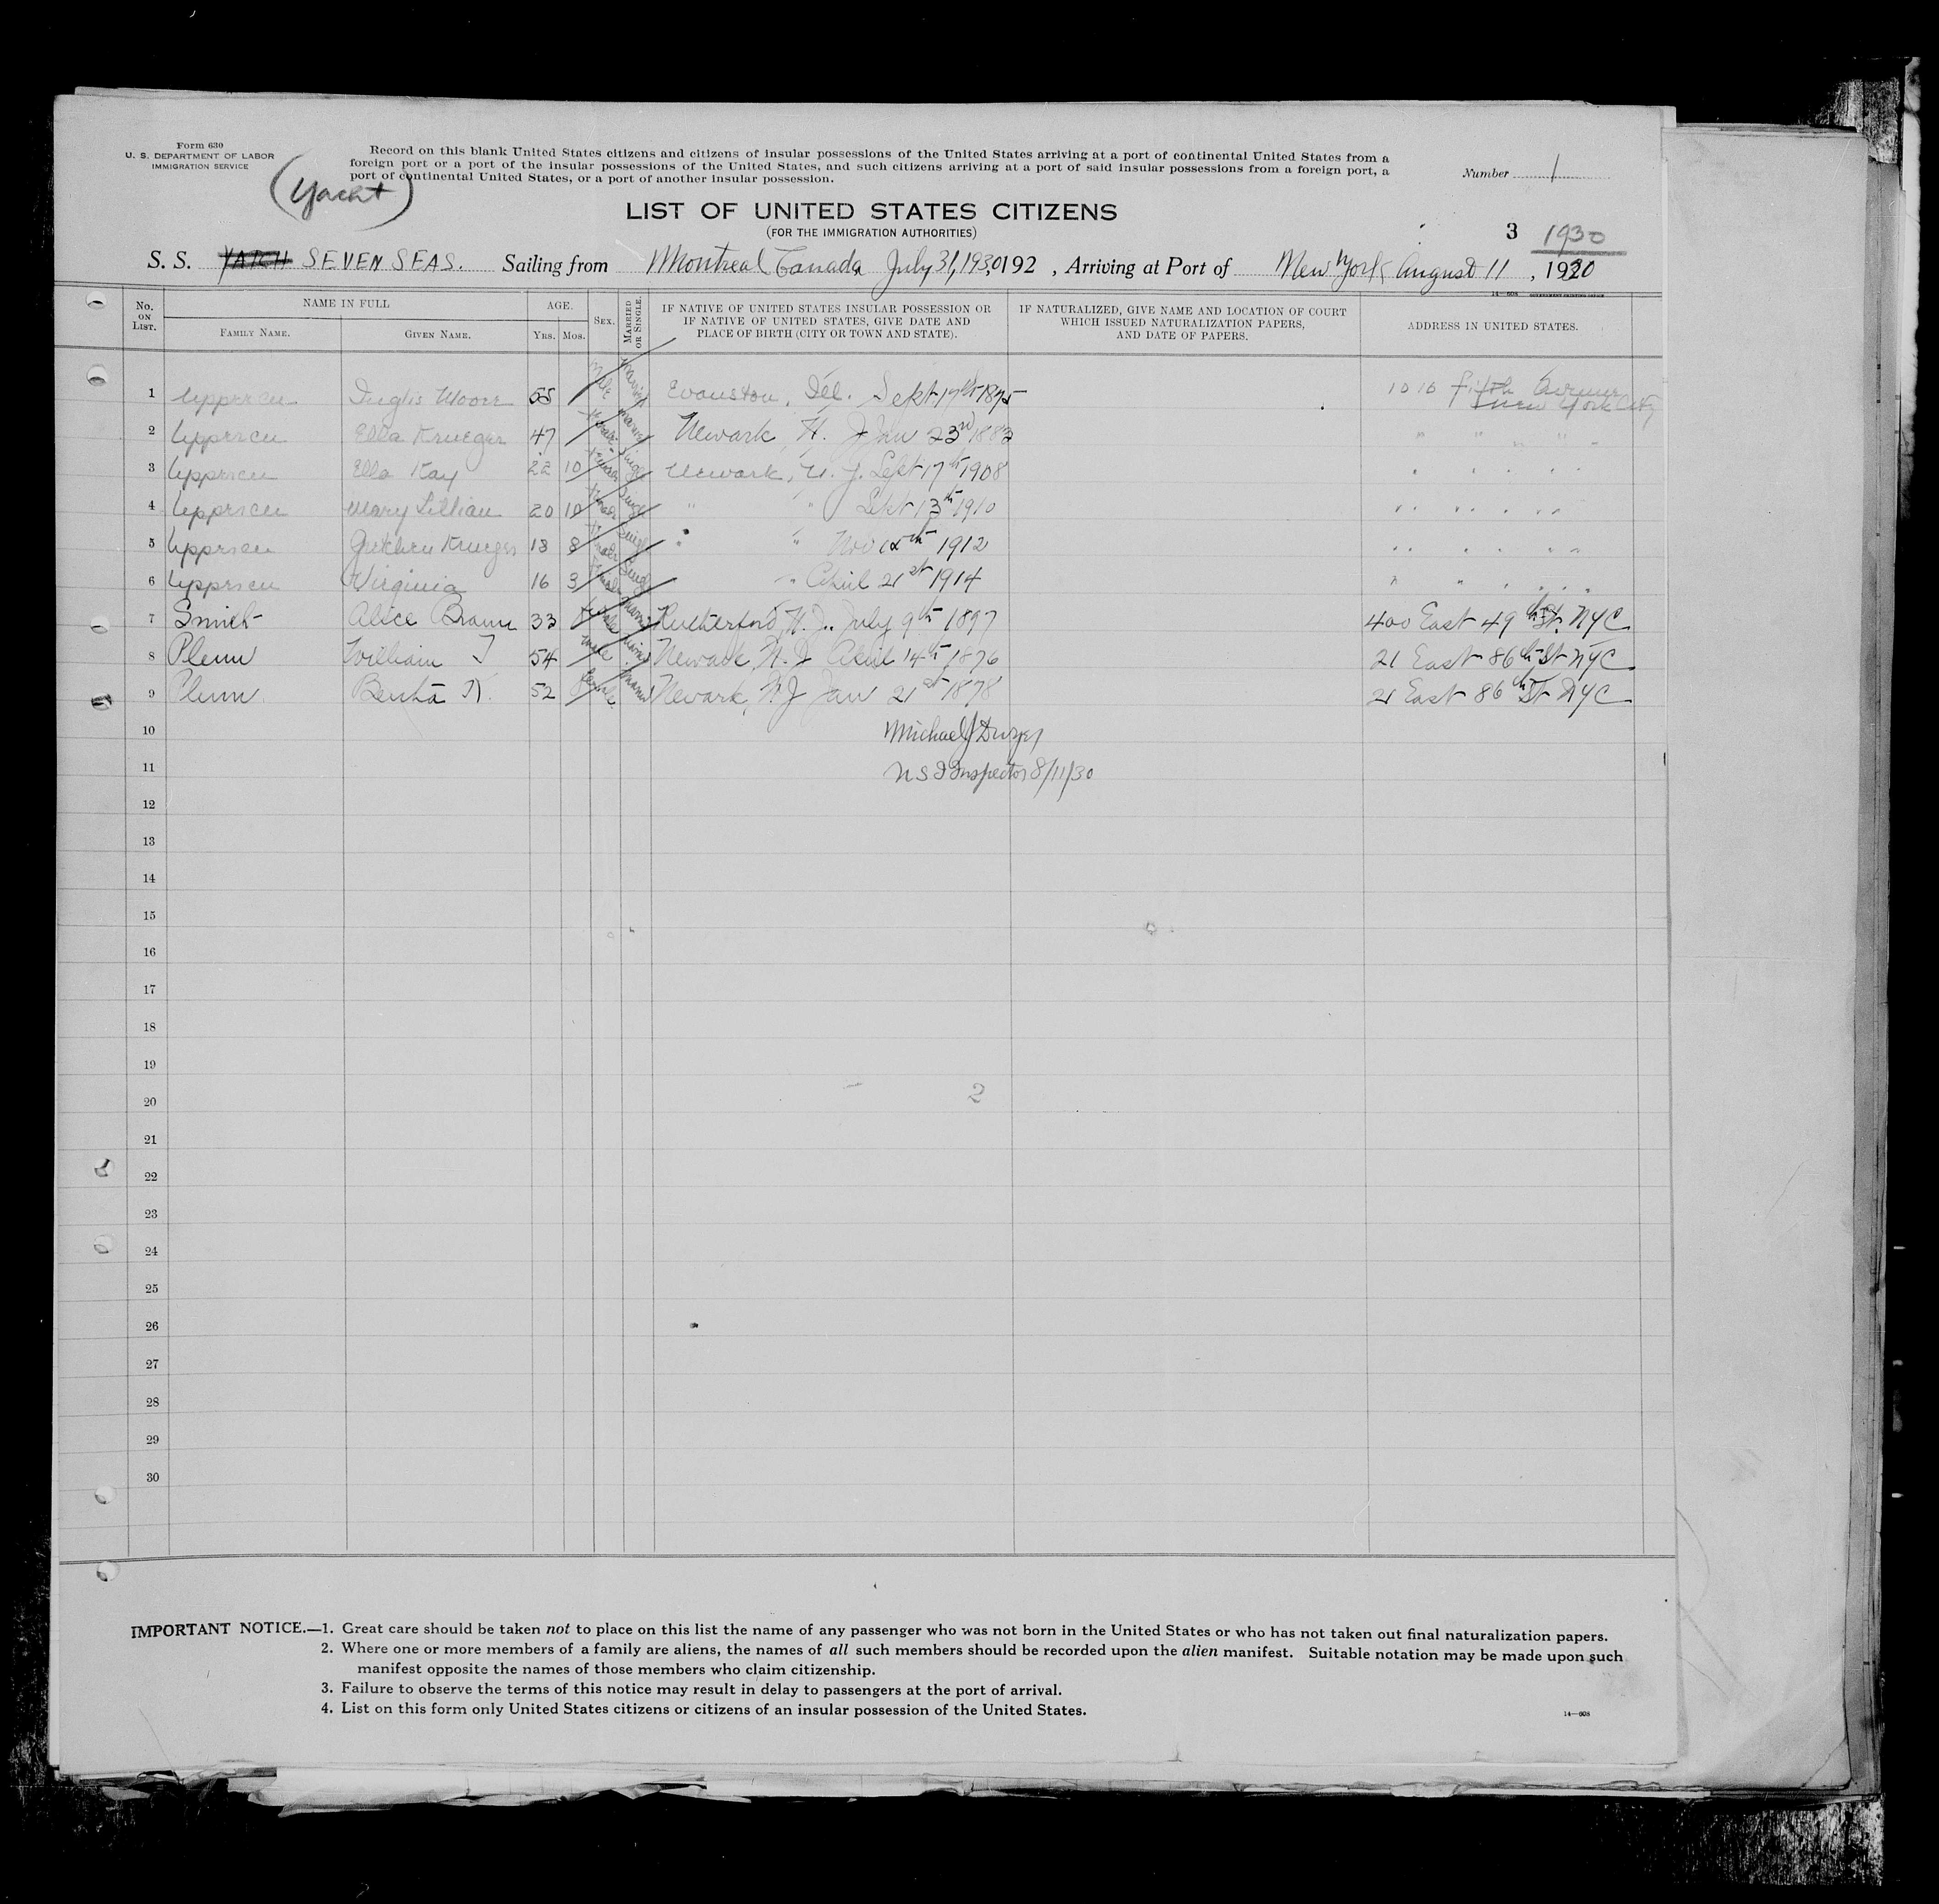 Form 630
U. S. DEPARTMENT OF LABOR
IMMIGRATION SERVICE
(Yacht)
Record on this blank United States citizens and citizens of insular possessions of the United States arriving at a port of continental United States from a
foreign port or a port of the insular possessions of the United States, and such citizens arriving at a port of said insular possessions from a foreign port, a
port of continental United States, or a port of another insular possession.
Number 1
LIST OF UNITED STATES CITIZENS
(FOR THE IMMIGRATION AUTHORITIES)
3 1930
S. S. YATCH SEVEN SEAS. Sailing from Montreal Canada July 31, 1930 192 , Arriving at Port of New York August 11 , 1930
14—608 GOVERNMENT PRINTING OFFICE
No. ON LIST. NAME IN FULL FAMILY NAME. GIVEN NAME. AGE. YRS. MOS. SEX. MARRIED OR SINGLE. IF NATIVE OF UNITED STATES INSULAR POSSESSION OR IF NATIVE OF UNITED STATES, GIVE DATE AND PLACE OF BIRTH (CITY OR TOWN AND STATE). IF NATURALIZED, GIVE NAME AND LOCATION OF COURT WHICH ISSUED NATURALIZATION PAPERS, AND DATE OF PAPERS. ADDRESS IN UNITED STATES.
1 Uppercu Inglis Moore 55 Male Married Evanston, Ill. Sept 17th 1875 1010 Fifth Avenue New York City
2 Uppercu Ella Krueger 47 Female Married Newark, N. J. 23rd 1883 " " " " "
3 Uppercu Ella Kay 22 10 Female Single Newark, N. J. Sept 17th 1908 " " " " "
4 Uppercu Mary Lillian 20 10 Female Single " " Sept 13th 1910 " " " " "
5 Uppercu Gretchen Krueger 18 8 Female Single " " Nov 1912 " " " " "
6 Uppercu Virginia 16 3 Female Single " April 21st 1914 " " " " "
7 Smith Alice 33 Female Married Rutherford, N. J. July 9th 1897 400 East 49th St. NYC
8 Plum William T 54 Male Married Newark, N. J April 14th 1876 21 East 86th St NYC
9 Plum Bertha K. 52 Female Married Newark, N. J Jan 21st 1878 21 East 86th St NYC
10 Michael J Dwyer
11 U S I Inspector 8/11/30
12
13
14
15
16
17
18
19
20 2
21
22
23
24
25
26
27
28
29
30
IMPORTANT NOTICE.—1. Great care should be taken not to place on this list the name of any passenger who was not born in the United States or who has not taken out final naturalization papers.
2. Where one or more members of a family are aliens, the names of all such members should be recorded upon the alien manifest. Suitable notation may be made upon such
manifest opposite the names of those members who claim citizenship.
3. Failure to observe the terms of this notice may result in delay to passengers at the port of arrival.
4. List on this form only United States citizens or citizens of an insular possession of the United States.
14—608